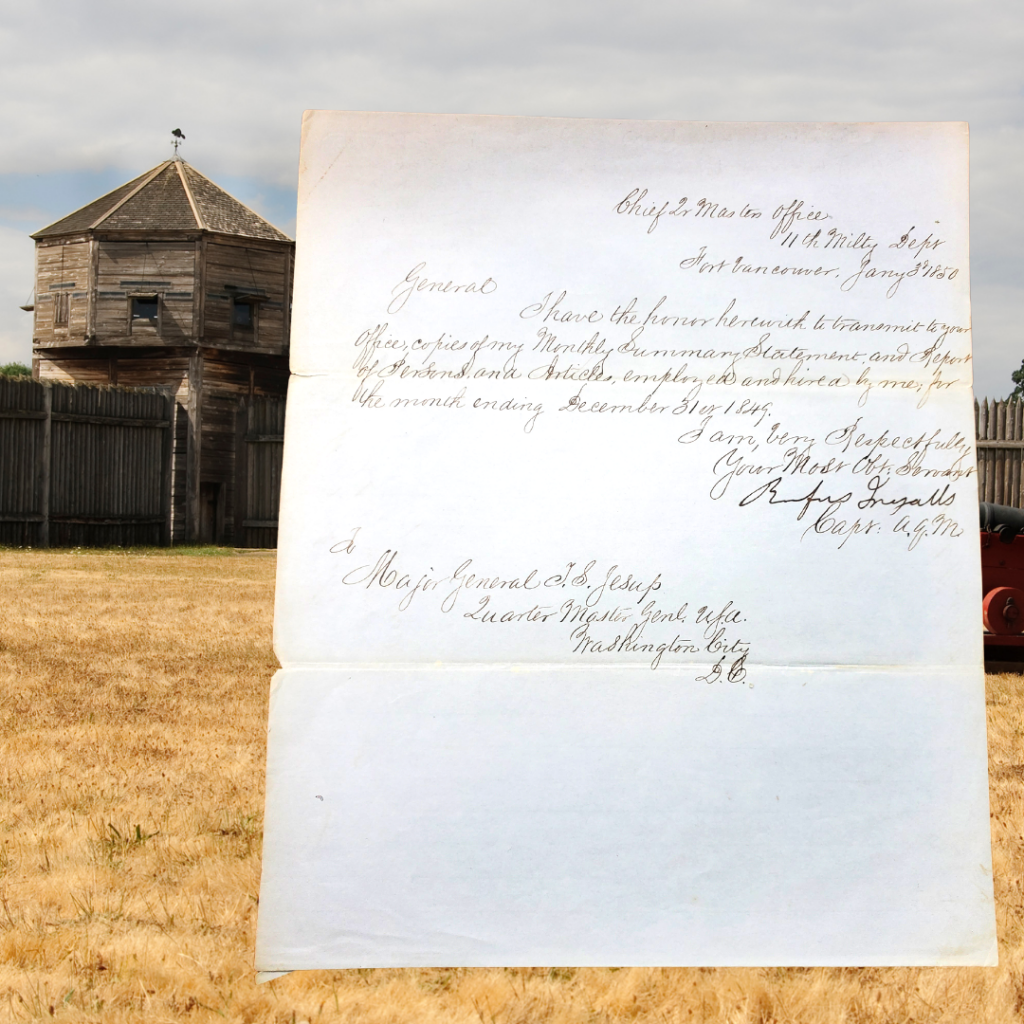 Chief Qr Masters Office
11th Milty Dept
Fort Vancouver, Jany 3d 1850
General
I have the honor herewith to transmit to your
Office, copies of my Monthly Summary Statement, and Report
of Persons and Articles, employed and hired by me, for
the month ending December 31st 1849.
I am, Very Respectfully
Your Most Obt. Servant
Rufus Ingalls
Capt: A.Q.M.
To
Major General T.S. Jesup
Quarter Master Genl. U.S.A.
Washington City
D.C.